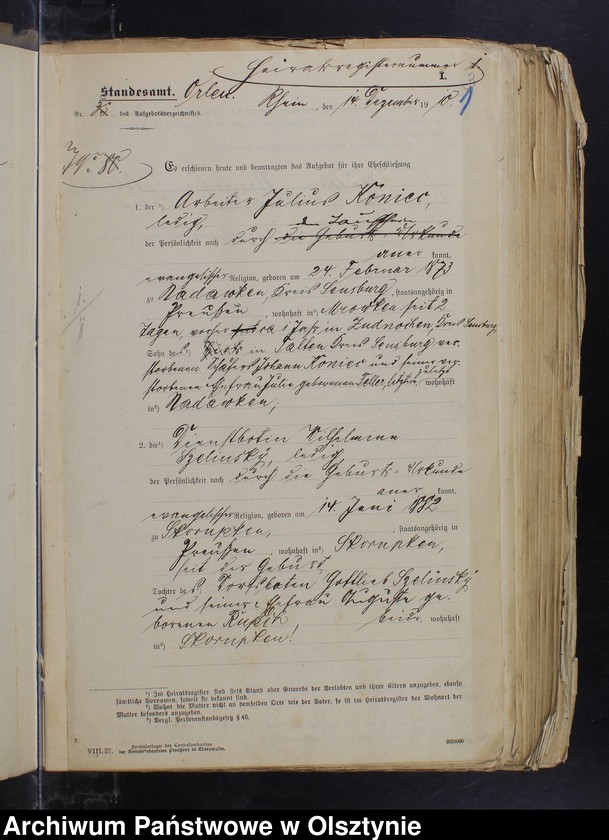 Heiratsregisternummer 1
I.
Standesamt. Orlen.
Rhein, den 14. Dezember 1910.
Nr. des Aufgebotsverzeichnisses.
Es erschienen heute und beantragten das Aufgebot für ihre Eheschließung
1. der ¹) Arbeiter Julius Koniec,
ledig,
den Taufschein
der Persönlichkeit nach durch die Geburts-Urkunde
aner kannt,
evangelischer Religion, geboren am 24. Februar 1873
zu Nadawken, Kreis Sensburg, staatsangehörig in
Preußen, wohnhaft in ²) Mrowken seit 2
Tagen, vorher ca 1 Jahr in Zudnochen, Kreis Sensburg
Sohn de s ¹) in Talten Kreis Sensburg ver-
storbenen Schäfers Johann Koniec und seiner ver-
storbenen Ehefrau Julie geborenen Teller, letztere, zuletzt wohnhaft
in ²) Nadawken;
2. die ¹) Dienstbotin Wilhelmine
Szelinsky, ledig
der Persönlichkeit nach durch die Geburts-Urkunde
aner kannt,
evangelischer Religion, geboren am 14. Juni 1882
zu Skorupken, staatsangehörig in
Preußen, wohnhaft in ²) Skorupken,
seit der Geburt,
Tochter de s ¹) Gottlieb Szelinsky
und seiner Ehefrau Auguste ge-
borenen, beide, wohnhaft
in ²) Skorupken!
¹) Im Heiratsregister sind stets Stand oder Gewerbe der Verlobten und ihrer Eltern anzugeben, ebenso
sämtliche Vornamen, soweit sie bekannt sind.
²) Wohnt die Mutter nicht an demselben Orte wie der Vater, so ist im Heiratsregister der Wohnort der
Mutter besonders anzugeben.
³) Vergl. Personenstandsgesetz § 46.
VIII. 27.
Formularlager des Centralvereins
der Standesbeamten Preußens in Eberswalde.
Archiwum Państwowe w Olsztynie